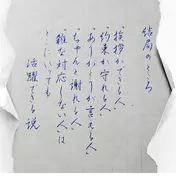 結局のところ
・挨拶ができる人
・約束が守れる人
・ありがとうが言える人
・ちゃんと謝れる人
・雑な対応しない人は
どこにいっても
活躍できる説